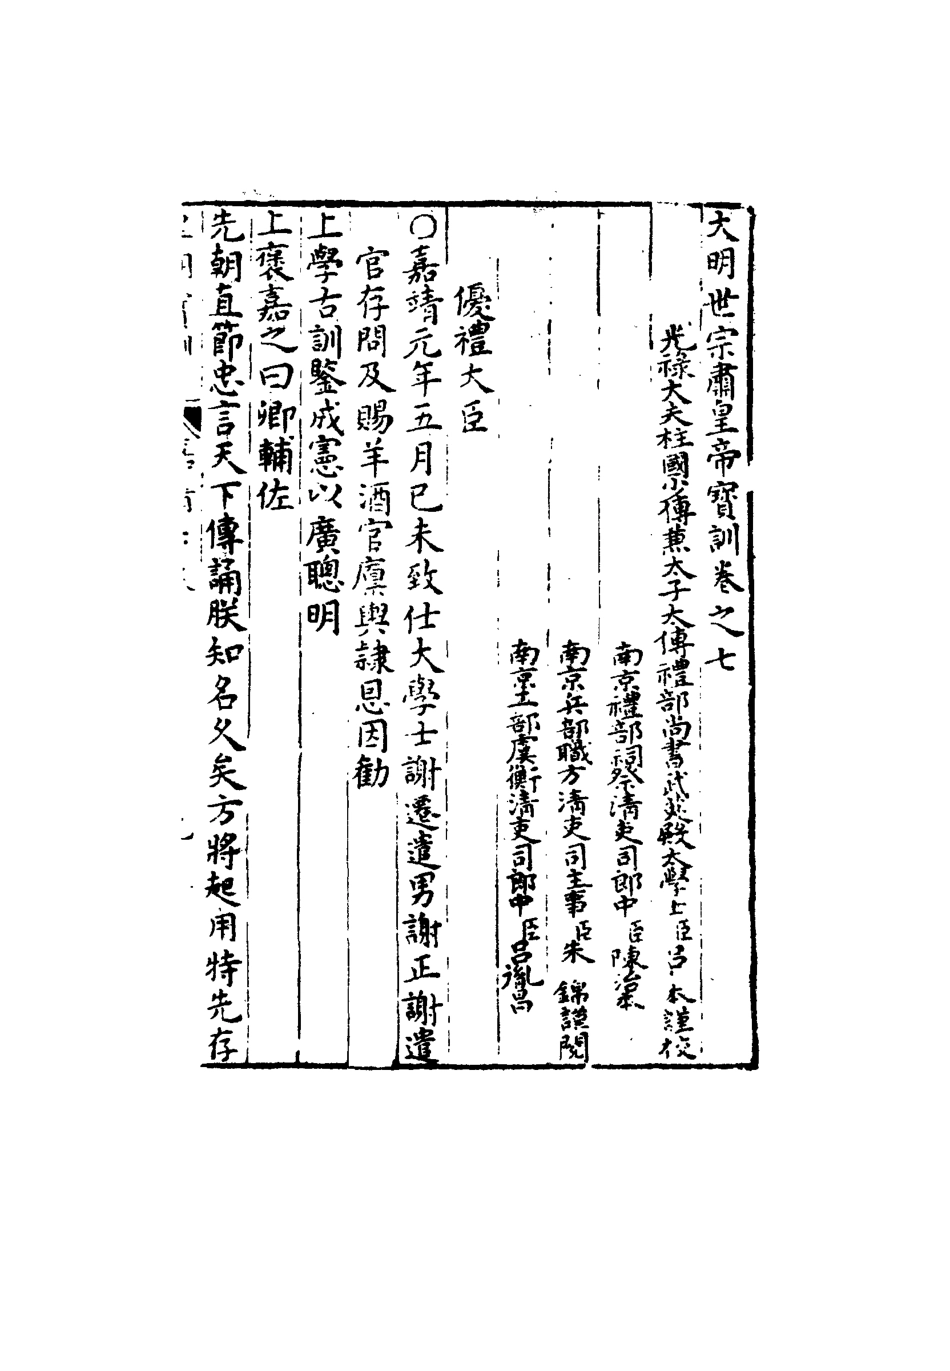 大明世宗肅皇帝寶訓卷之七
光祿大夫柱國少傅兼太子太傅禮部尚書武英殿大學士臣呂本謹校
南京禮部祠祭清吏司郎中臣陳治
南京兵部職方清吏司主事臣朱錦謹閱
南京工部虞衡清吏司郎中臣呂胤昌
優禮大臣
○嘉靖元年五月已未致仕大學士謝遷遣男謝正謝遣
官存問及賜羊酒官廪輿隸恩因勸
上學古訓鑒成憲以廣聰明
上褒嘉之曰卿輔佐
先朝直節忠言天下傳誦朕知名久矣方將起用特先存